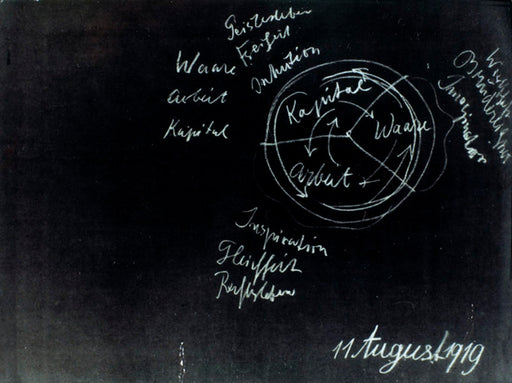 Geistesleben
Freiheit
Intuition
Waare
Arbeit
Kapital
Kapital
Waare
Arbeit
Wirtschaft
Brüderlichkeit
Imagination
Inspiration
Gleichheit
Rechtsleben
11 August 1919